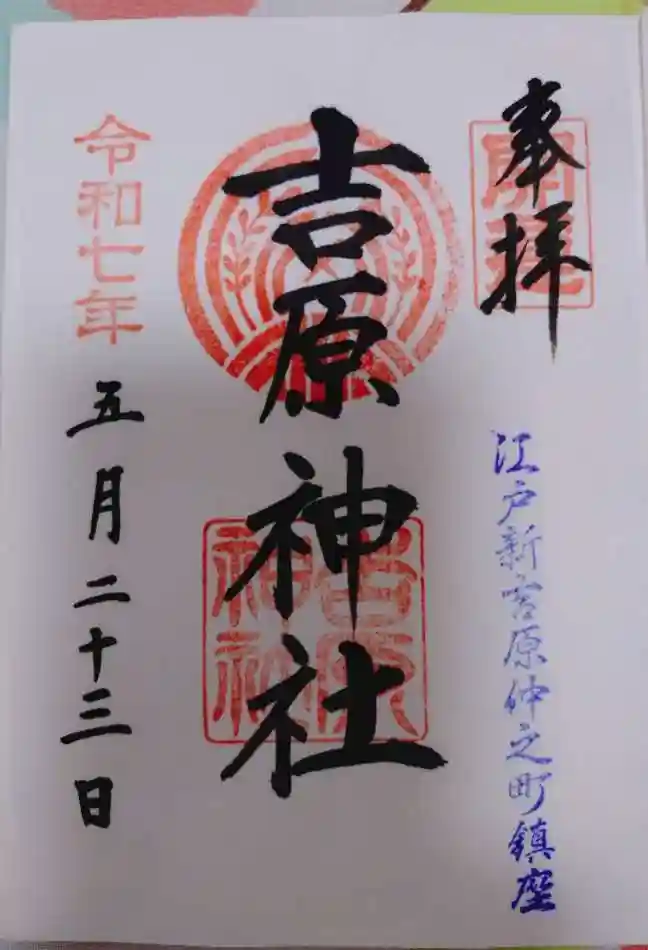 奉拝
開運
江戸新吉原仲之町鎮座
吉原神社
吉原神社
令和七年
五月二十三日